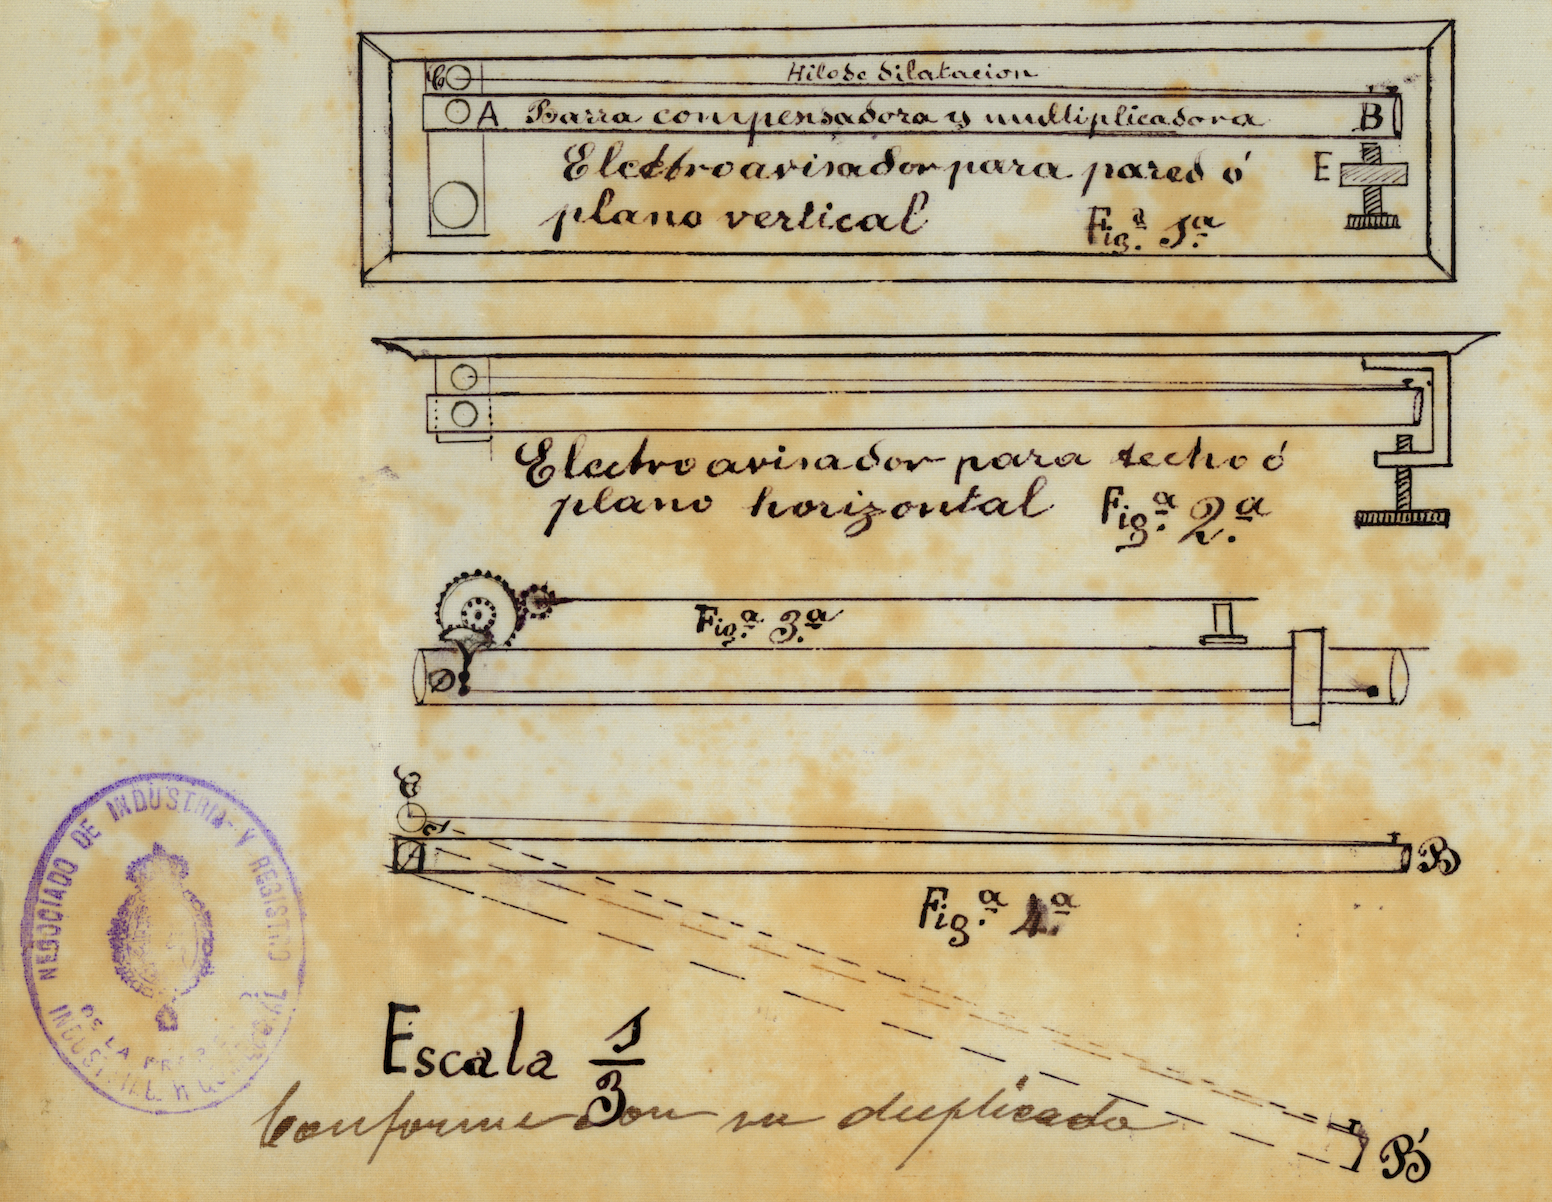 C
Hilo de dilatacion
A Barra compensadora y multiplicadora B
Electroavisador para pared ó
plano vertical Fig.ª 1.ª
E
Electroavisador para techo ó
plano horizontal Fig.ª 2.ª
Fig.ª 3.ª
D
C
A B
Fig.ª 4.ª
NEGOCIADO DE INDUSTRIA Y REGISTRO
DE LA
INDUSTRIAL Y
Escala 1/3
Conforme con su duplicado
B'